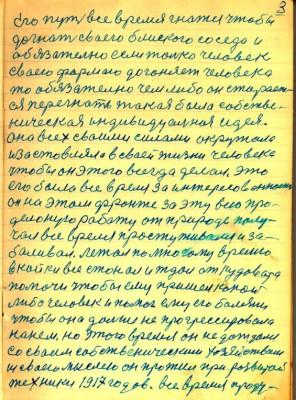 3
Его путь все время гнался чтобы
догнать своего близкого соседа и
обязательно если только человек
своего формаю догоняет человека
то обязательно чем либо он старает-
ся перегнать такая была собстве-
ническая индивидуальная идея.
Она всех своими силами окружала
и заставляла в своей жизни человека
чтобы он этого всегда делал, это
его была все время заинтересованность
он на этом фронте за эту всю про-
делоную работу от природе полу-
чал все время простуживал и за-
баливал. Лежал по многому время
в койки все стонал и ждал откудова та
помочи чтобы ему пришел какой
либо человек и помог ему его болями
чтобы она дальше не прогрессировала
на нем, но этого время он не дождали
со своим собственическим хозяйством
и своею мыслею он прожил при развитой
техники 1917 годов. Все время проду-